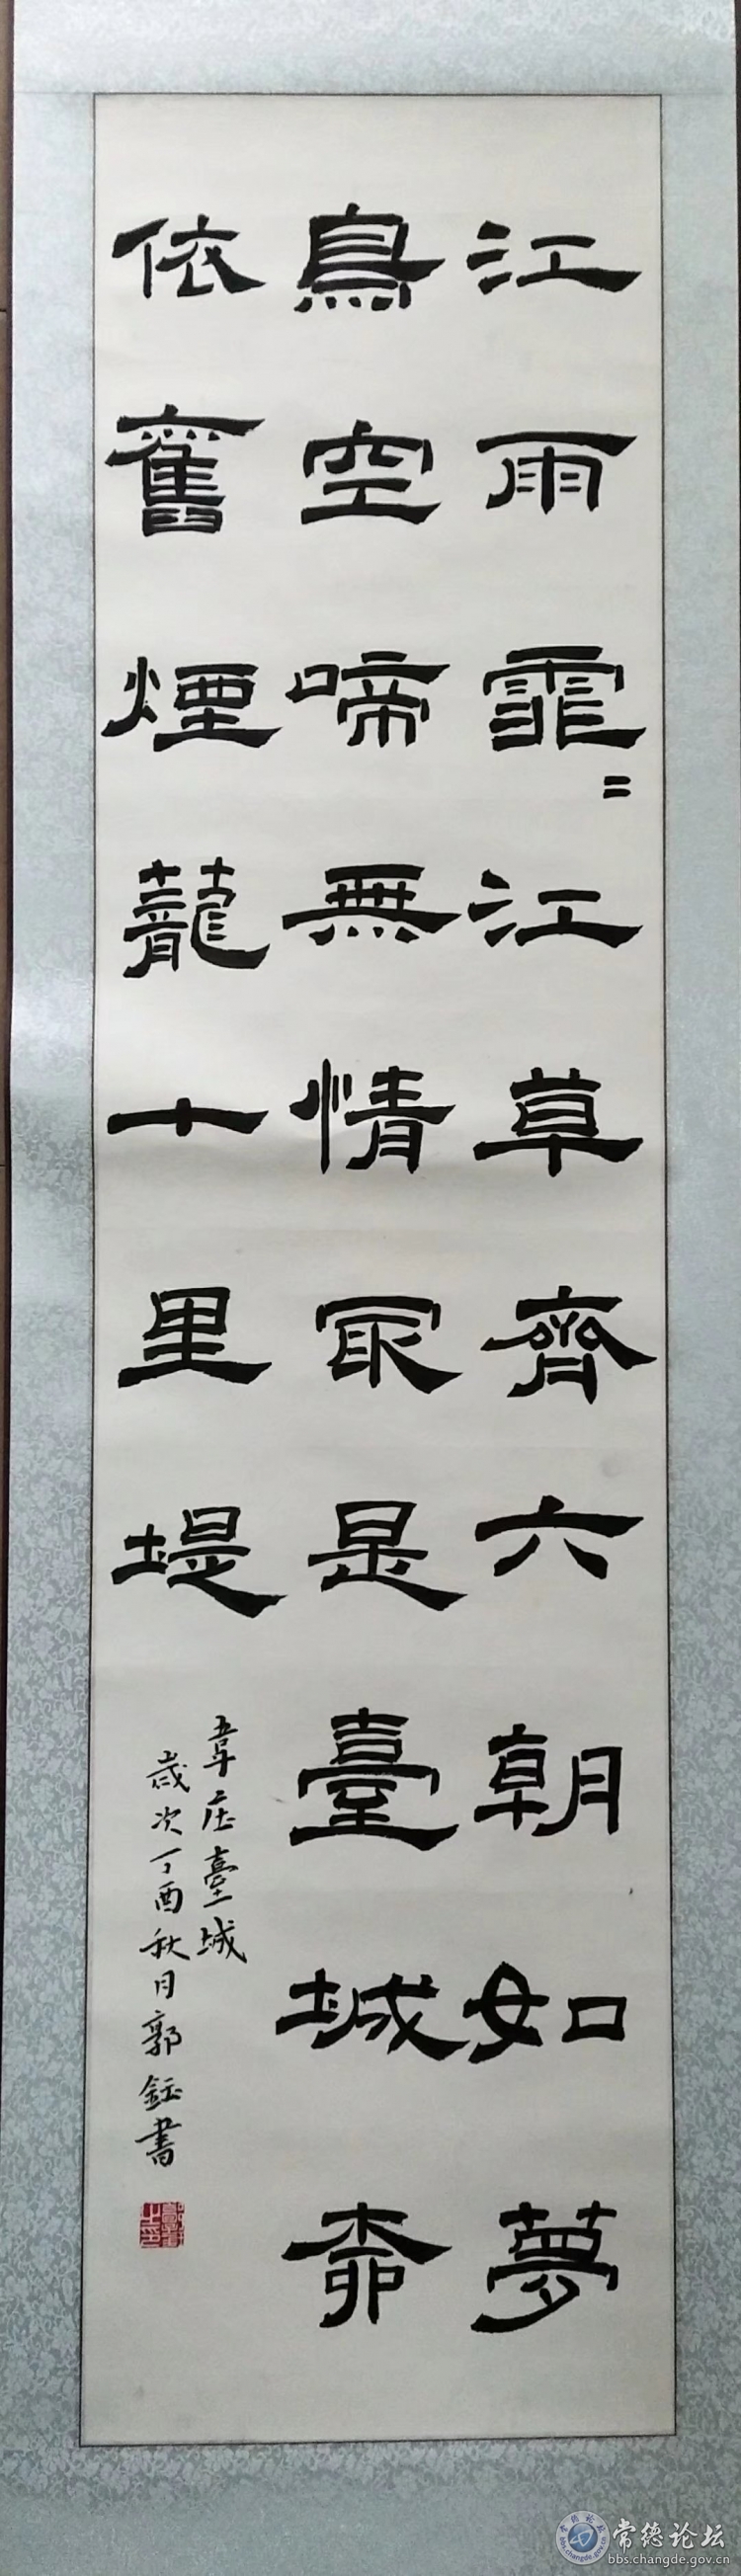 江雨霏〻江草齊六朝如夢
鳥空啼無情冣是臺城柳
依舊煙籠十里堤
韋庄臺城
歲次丁酉秋月郭鈺書
常德论坛
bbs.changde.gov.cn